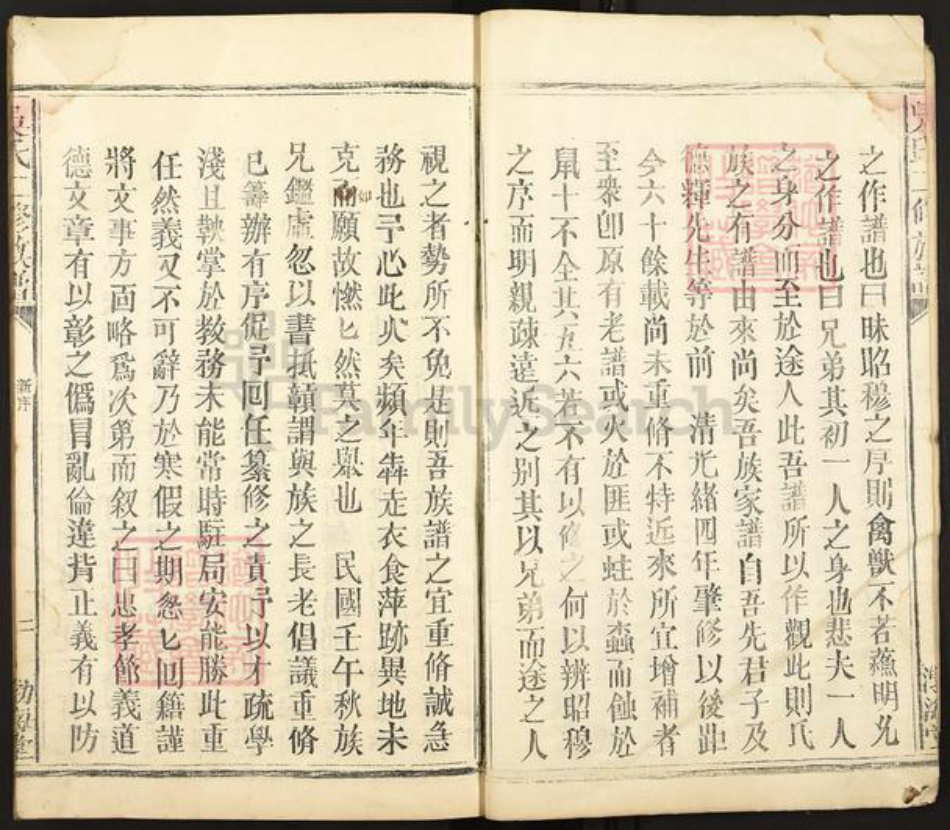 之作譜也曰昧昭穆之序則禽獸不若蘓明允
之作譜也曰兄弟其初一人之身也悲夫一人
之身分而至於途人此吾譜所以作觀此則氏
族之有譜由來尚矣吾族家譜自吾先君子及
德輝先生等於前 清光緒四年肇修以後距
今六十餘載尚未重脩不特近來所宜增補者
至衆卽原有老譜或火於匪或蛀於蟲而蝕於
鼠十不全其五六若不有以修之何以辨昭穆
之序而明親疎遠近之別其以兄弟而途之人
視之者勢所不免是則吾族譜之宜重脩誠急
務也予心此久矣頻年犇走衣食萍跡異地未
克如願故憖匕然莫之舉也 民國壬午秋族
兄鑑虛忽以書抵贛謂與族之長老倡議重脩
已籌辦有序促予回任纂修之責予以才疏學
淺且鞅掌於教務未能常時駐局安能勝此重
任然義又不可辭乃於寒假之期怱匕回籍謹
將文事方面略爲次第而叙之曰忠孝節義道
德文章有以彰之僞冒亂倫違背止義有以防
新序
二
FamilySearch